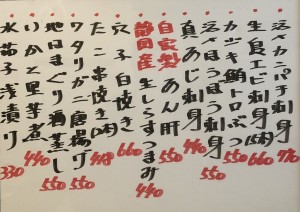 活〆カンパチ刺身 770
生食エビ刺身(5本) 660
カツオ鯛トロぶつ 550
活〆ほうぼう刺身 550
真あじ刺身 550
自家製 あん肝 440
静岡産 生しらすつまみ 440
穴子白焼き 660
たこ串焼き(2本) 418
ワタリガニ唐揚げ 550
地はまぐり酒蒸し 550
いかと里芋煮 440
水茄子浅漬り 330